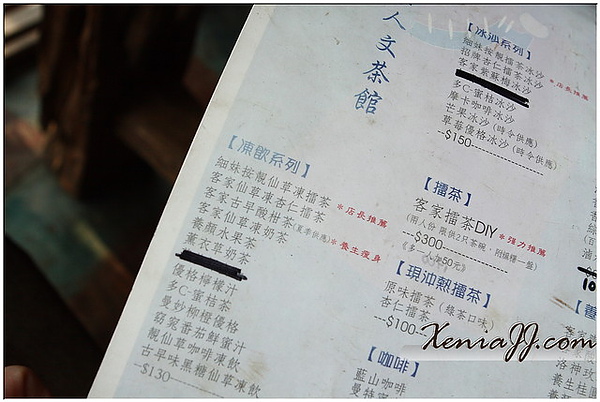 人文茶館
【冰沙系列】
細妹按靚擂茶冰沙
招牌杏仁擂茶冰沙
客家紫蘇梅冰沙 *店長推薦
多C-蜜桔冰沙
摩卡咖啡冰沙
芒果冰沙(時令供應)
草莓優格冰沙(時令供應)
--$150
【凍飲系列】
細妹按靚仙草凍擂茶
客家仙草凍杏仁擂茶
客家古早酸柑茶(夏季供應) *店長推薦
客家仙草凍奶茶 *養生瘦身
養顏水果茶
薰衣草奶茶
優格檸檬汁
多C-蜜桔茶
曼妙柳橙優格
窈窕番茄鮮蜜汁
靚仙草咖啡凍飲
古早味黑糖仙草凍飲
--$130
【擂茶】
客家擂茶DIY *強力推薦
(兩人份 限供2只茶碗,附擂糬一盤)
--$300
《多一人加50元》
【現沖熱擂茶】
原味擂茶(綠茶口味)
杏仁擂茶
--$100
【咖啡】
藍山咖啡
XeniaJJ.com